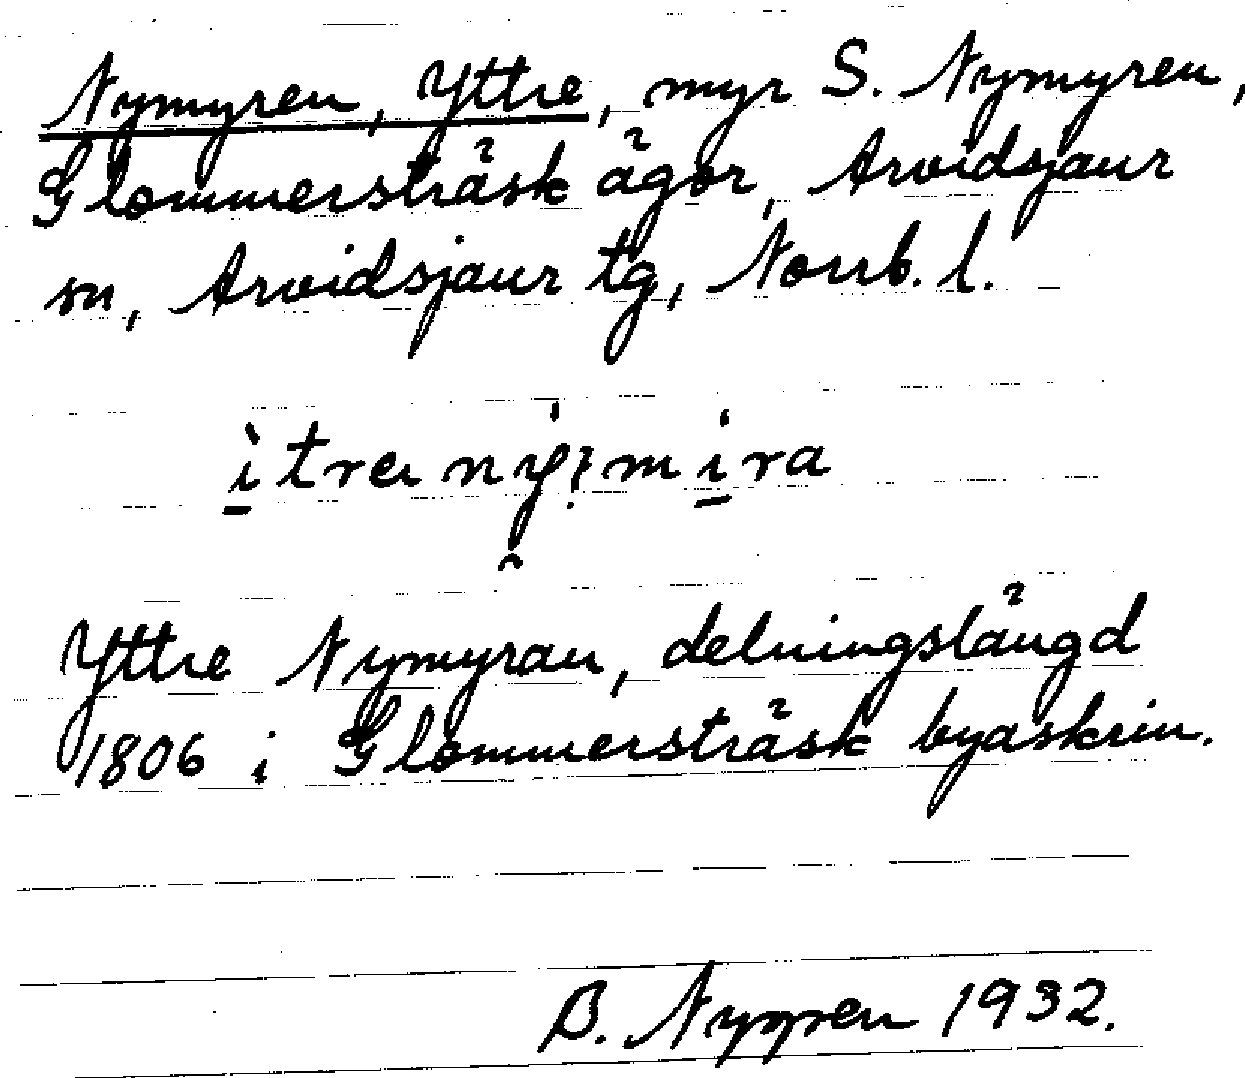 Nymyren, Yttre, myr S. Nymyren,
Glommersträsk ägor, Arvidsjaur
sn, Arvidsjaur tg, Norrb. l.
Yttre Nymyran, delningslängd
1806 i Glommersträsk byaskrin.
B. Nygren 1932.